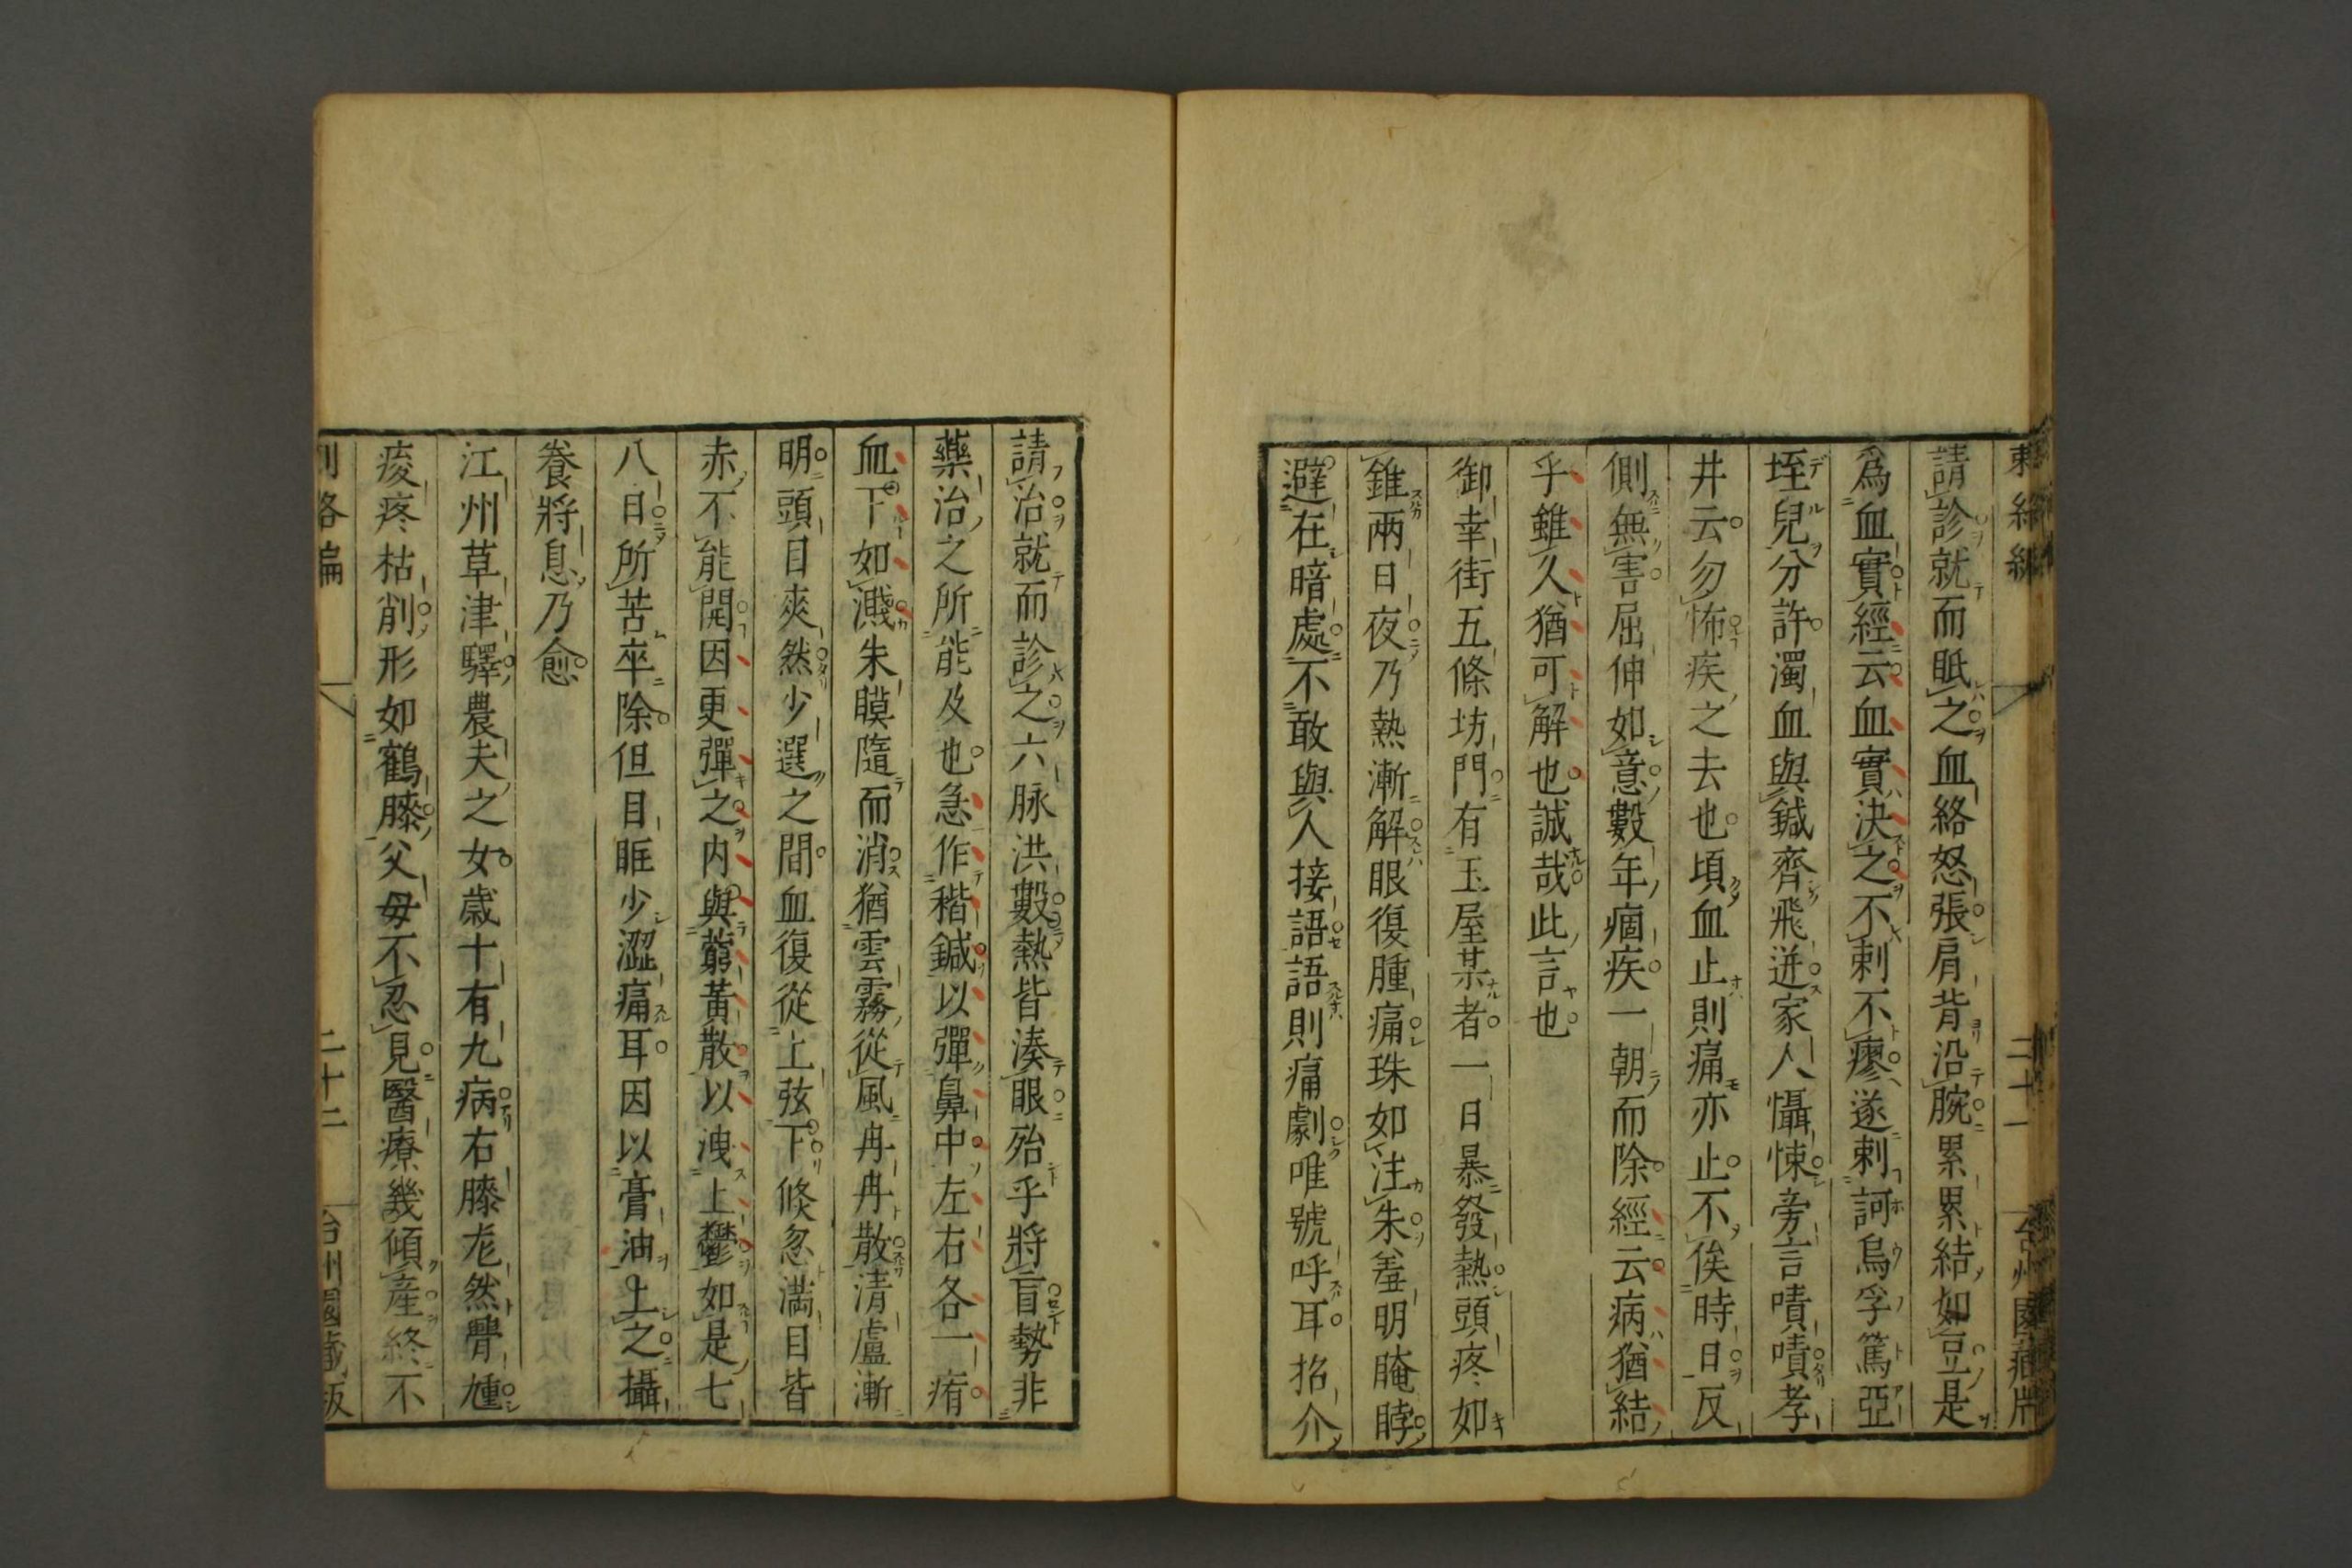 請診就而眂之血絡怒張肩背沿腕累累結如豆是
為血實經云血實決之不刺不瘳遂刺訶烏孚篤亞
垤兒分許濁血與鍼齊飛迸家人懾悚旁言嘖嘖孝
井云勿怖疾之去也頃血止則痛亦止不俟時日反
側無害屈伸如意數年痼疾一朝而除經云病猶結
乎雖久猶可解也誠哉此言也
御幸街五條坊門有玉屋某者一日暴發熱頭疼如
錐兩日夜乃熱漸解眼復腫痛珠如注朱羞明腌脖
避在暗處不敢與人接語語則痛劇唯號呼耳招介
請治就而診之六脉洪數熱皆湊眼殆乎將盲勢非
藥治之所能及也急作稭鍼以彈鼻中左右各一痏
血下如濺朱膜隨而消猶雲霧從風冉冉散清盧漸
明頭目爽然少選之間血復從上弦下倏忽滿目皆
赤不能開因更彈之内與藭黃散以洩上鬱如是七
八日所苦卒除但目眶少澀痛耳因以膏油上之攝
養將息乃愈
江州草津驛農夫之女歲十有九病右膝尨然骨尰
痠疼枯削形如鶴膝父母不忍見醫療幾傾產終不
刺絡編
二十二
台州園藏版